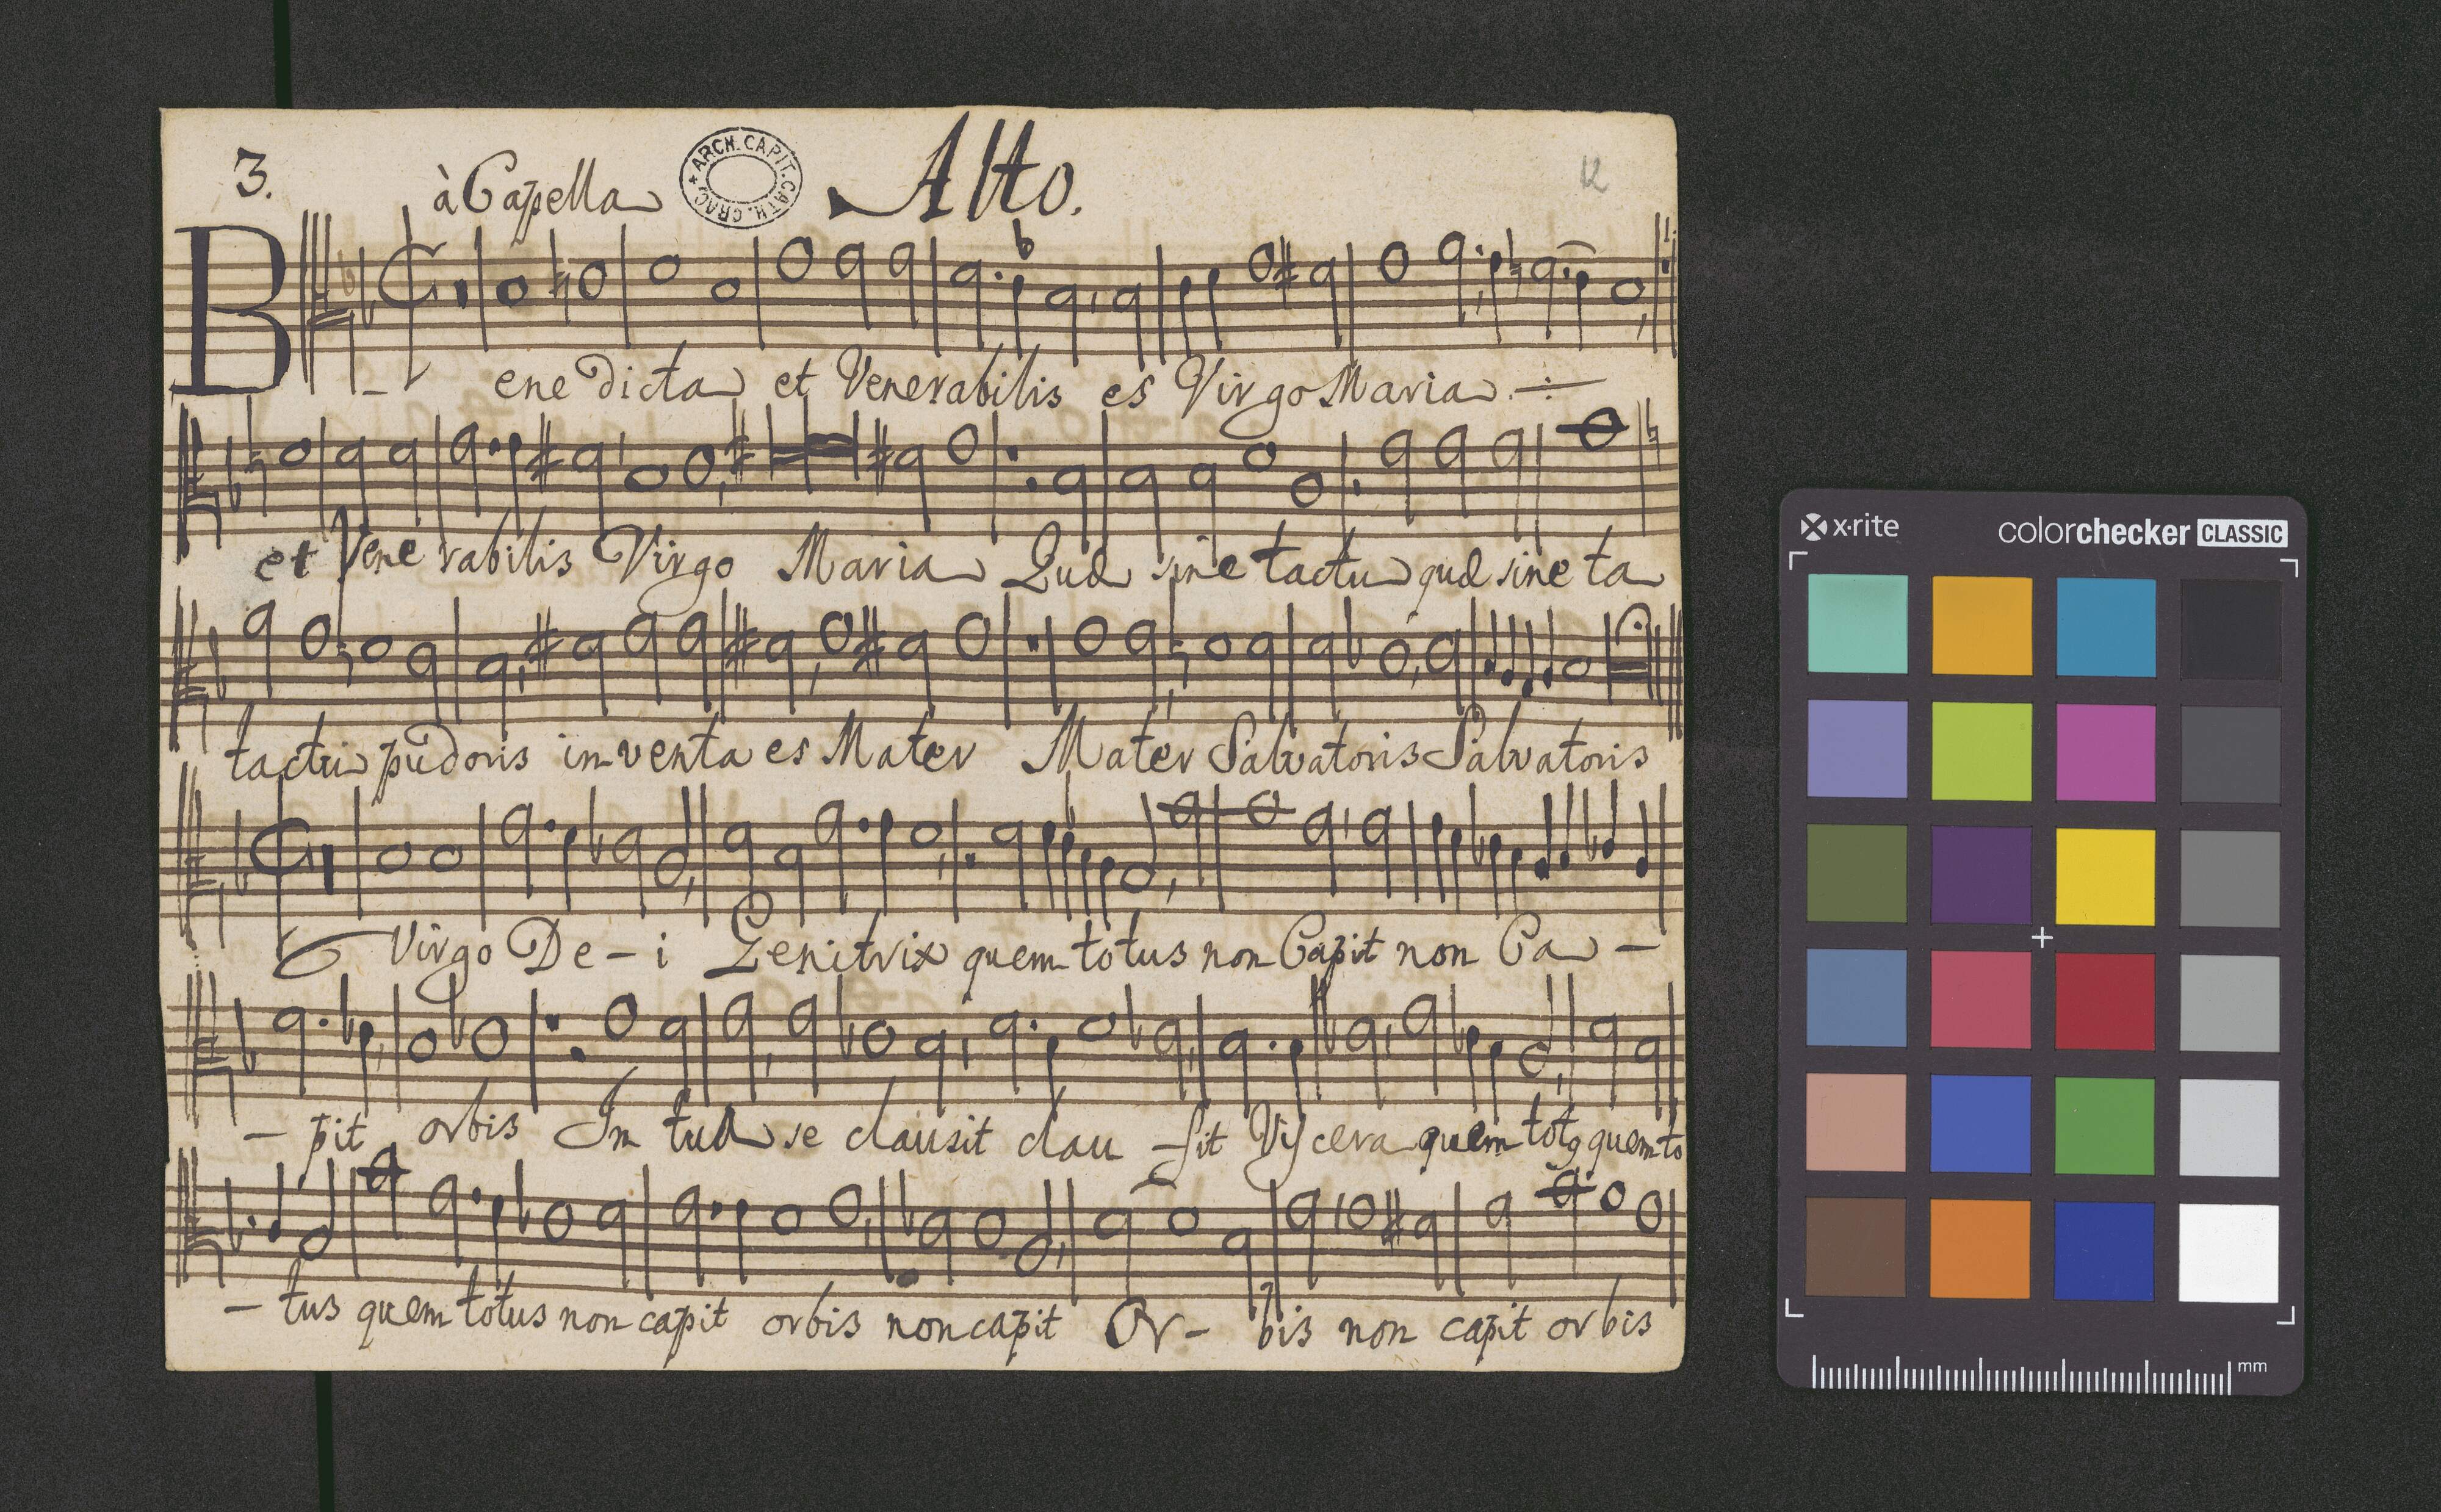 3. à Capella Alto. 12
ARCH. CAPIT. CATH. CRAC.
Bene dicta et Venerabilis es Virgo Maria
et Venerabilis Virgo Maria Qud sine tactu qud sine ta
tactu pudoris inventa es Mater Mater Salvatoris Salvatoris
Virgo De - i Genitrix quem totus non Capit non Ca -
- pit orbis In tua se clausit clau - sit Viscera quem totq quem to
- tus quem totus non capit orbis non capit Or - bis non capit orbis
x-rite colorchecker CLASSIC
mm